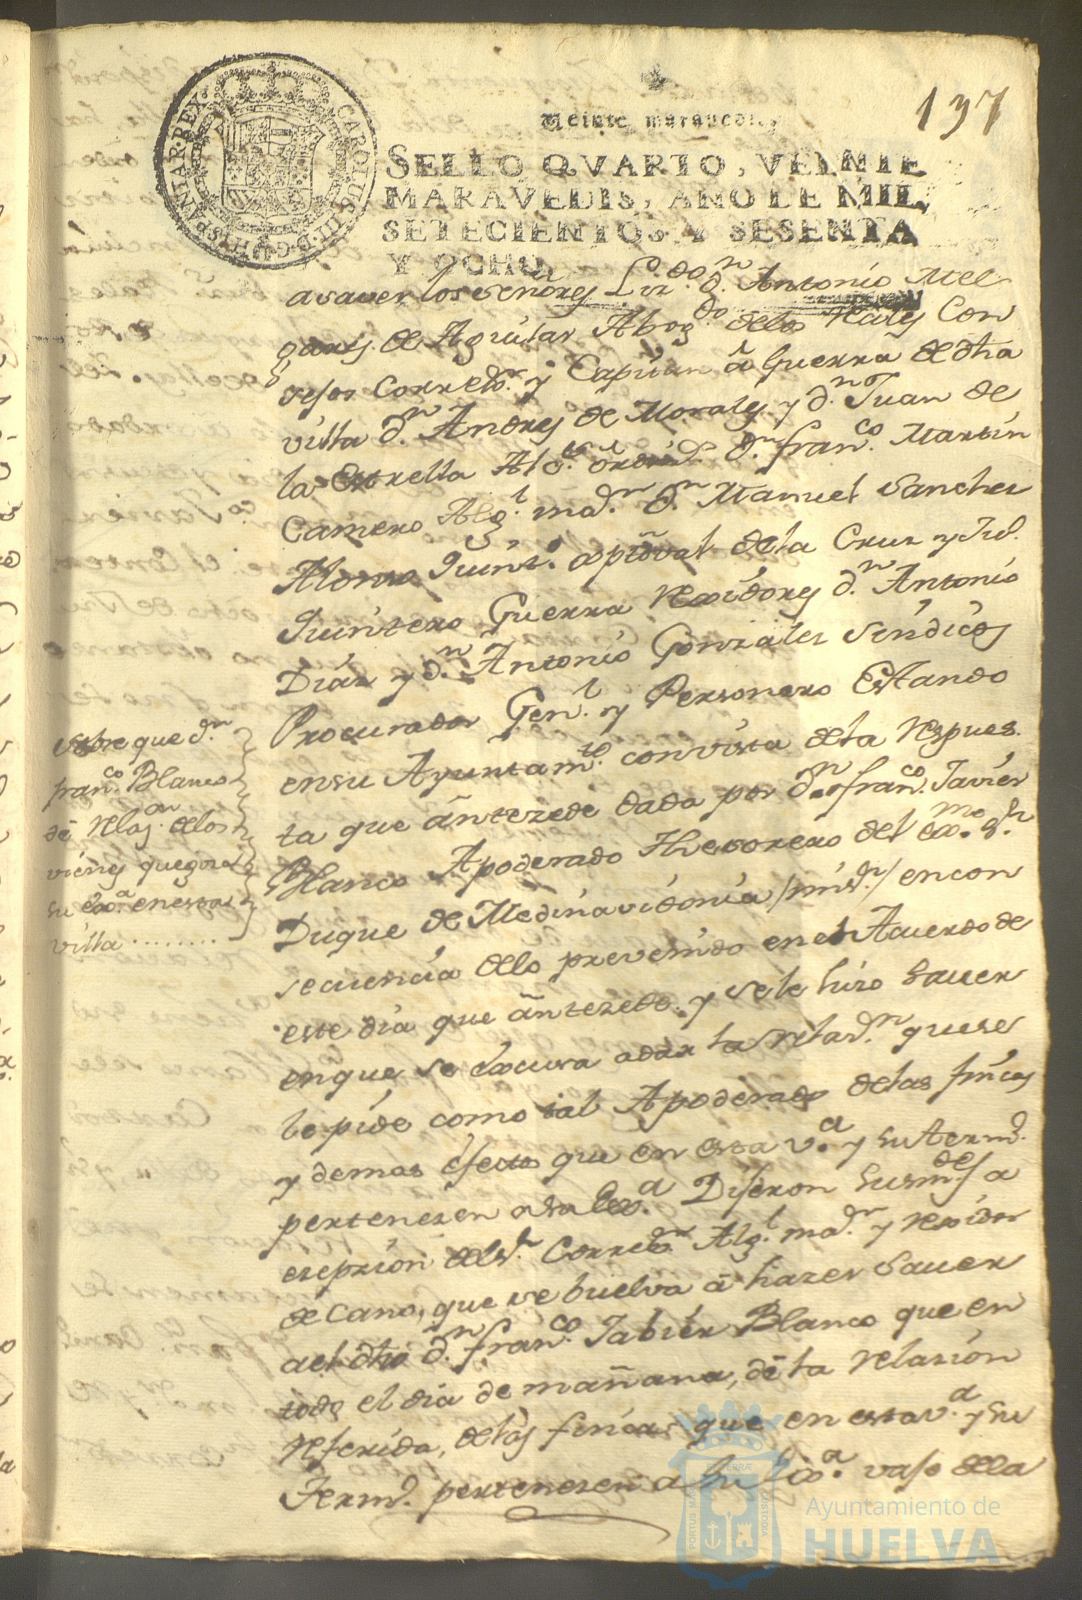 137
CAROLUS III D. G. HISPANIAR. REX
Veinte maravedis
SELLO QVARTO, VEINTE
MARAVEDIS, AÑO DE MIL
SETECIENTOS Y SESENTA
Y OCHO.
asaver los señores Lizdo. dn. Antonio Mel
gares de Aguilar Abogdo. delos Reales Con
sejos Corredor. y Capitan â Guerra de dha
villa dn. Andres de Morales y dn. Juan de
la Estrella Alcs. ordins. dn. franco. Martin
Camero Algl. mar. dn. Manuel Sanches
Alonso Quint. dela Cruz y
Quintero Guerra Rexidores dn. Antonio
Diaz y dn. Antonio Gonzales Sindicos
Procurador Genl. y Personero Estando
ensu Ayuntamto. convista dela Respues
ta que ântezede dada por dn. franco. Javier
Blanco Apoderado Thesorero del exmo. sr.
Duque de Medinasidonia /mi sr./ encon
secuencia delo prevenido en el Acuerdo de
este dia que ântezede y sele hizo saver
enque se excusa adar la relasn. quese
le pide como tal Apoderado delas fincas
y demas efectos que en esta va. y su termo.
pertenesen a su Exa. Dijeron susmdes. a
esepsion delsr. Corredor. Algl. mar. y Rexidor
de Cano, que se buelva â hazer saver
ael dho dn. franco. Jabier Blanco que en
todo el dia de mañana, dê la relasion
referida, delas fincas que en esta va. y su
Termo. pertenesen a su Exa. vajo dela
Sobre que dn.
franco. Blanco
dê relason. delos
vienes quegosa
su exa. enesta
villa ........
Ayuntamiento de
HUELVA